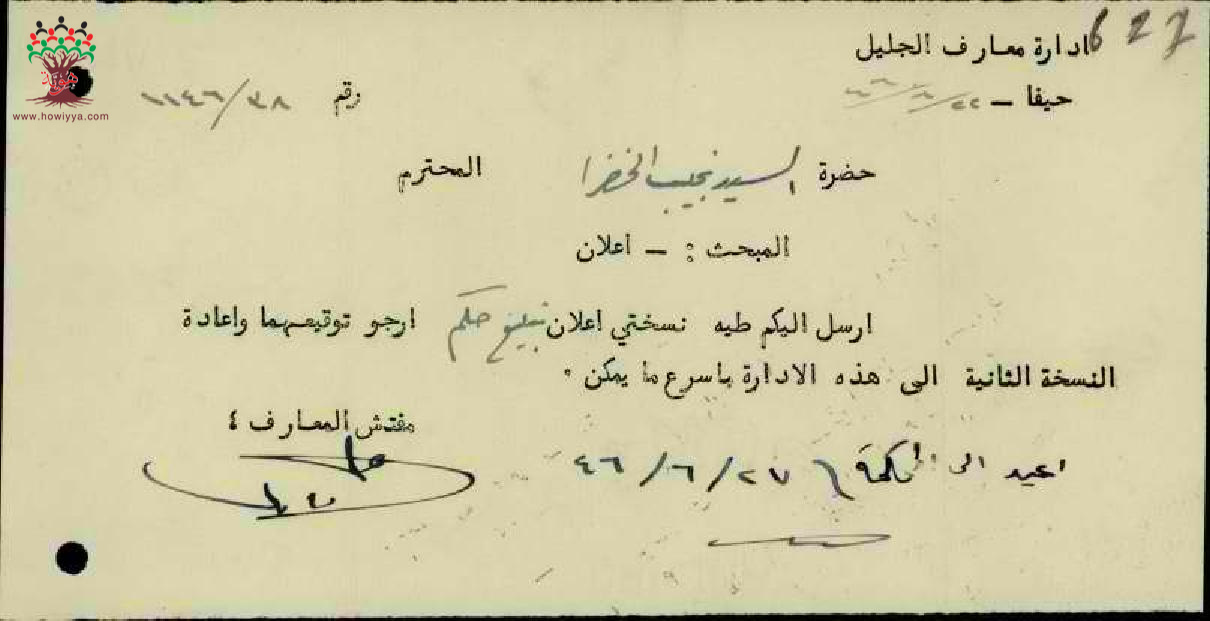 627
ادارة معارف الجليل
حيفا – ٢٢/٦/٤٦
رقم ٣٨/١١٤٦
حضرة السيد نجيب الخضرا المحترم
المبحث : – اعلان
ارسل اليكم طيه نسختي اعلان تبليغ حكم ارجو توقيعهما واعادة
النسخة الثانية الى هذه الادارة باسرع ما يمكن .
مفتش المعارف ٤
اعيد الى المحكمة ٢٧/٦/٤٦
هوية
www.howiyya.com